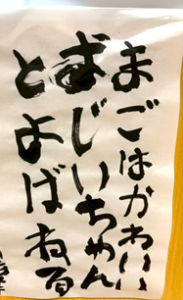 まごはかわいい
おじいちゃん
とよばね百